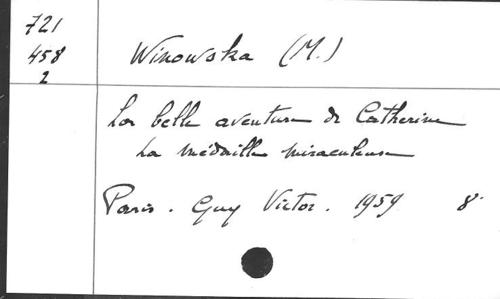 721
458
2
Winowska (M.)
La belle aventure de Catherine
La médaille miraculeuse
Paris. Guy Victor. 1959 8°